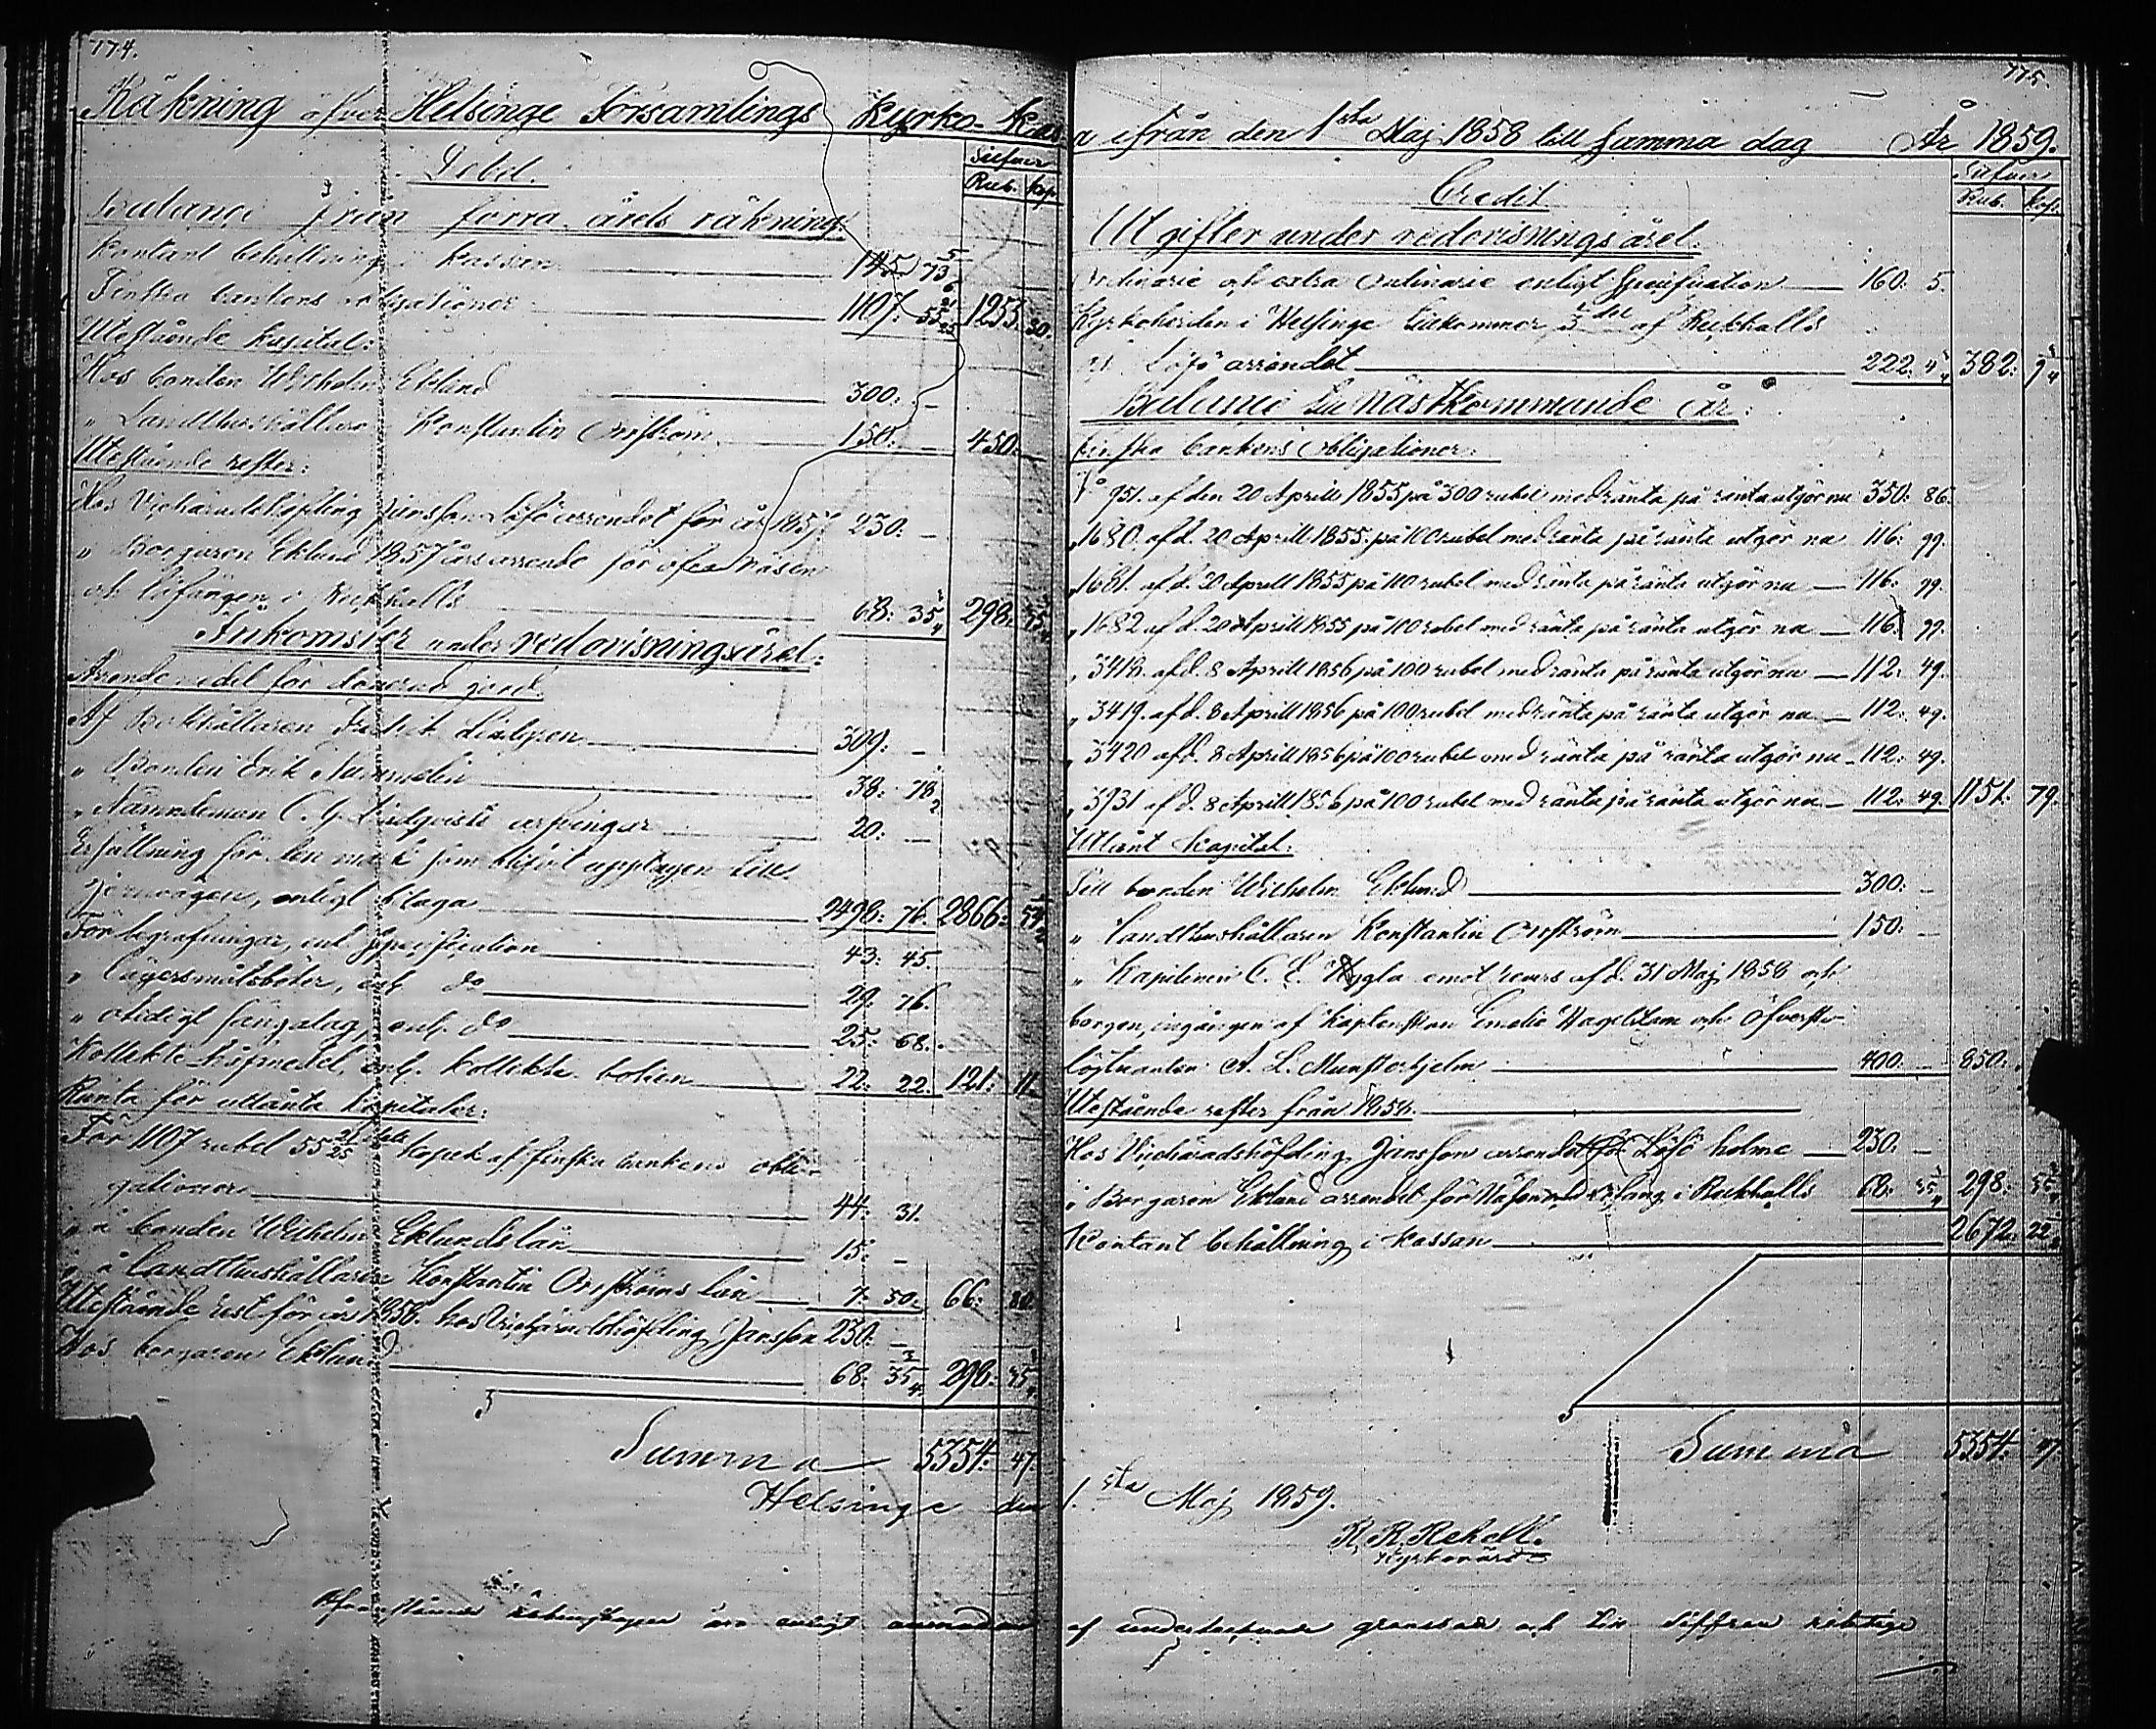 174.
Räkning öfver Helsinge Församlings Kyrko-Kas
Debet.
Silfver
Rub. Kop.
Balance från förra årets räkning:
Kontant behållning i kassan 145. 73 5/6
Finska bankens obligationer 1107. 55 21/25 1253. 30.
Utestående kapital:
Hos bonden Wilhelm Eklund 300: —
" Landthushållare Konstantin Orrström 150: — 450: —
Utestående rester:
Hos Vicehäradshöfding Jansson Löfö arrendet för år 1857. 230: —
" Borgaren Eklund 1857 års arrende för
och i Rekhalls 68: 35 3/4 298: 35 3/4
Inkomster under redovisningsåret:
Arende medel för donerad jord.
Af Bokhållaren 309: —
" Bonden Erik Nummelin 38: 78 1/2
" Nämndeman C. G. Lindqvists arfvingar 20: —
Ersättning för den mark som blifvit upptagen till
jernvägen, enligt bilaga 2498: 76. 2866: 54 1/2
För begrafningar, enl. Specification 43: 45.
" lägersmålsböter, enl. do 29: 76.
" otidigt sänglag, enl. do 25: 68.
Kollekte håfmedel, enl. Kollekte boken 22: 22. 121: 11.
Ränta för utlånta kapitaler:
För 1107 rubel 55 21/25 dels kopek af finska bankens obli-
gationer 44: 31.
" å bonden Wilhelm Eklunds lån 15: —
" å Landthushållaren Konstantin Orrströms lån 7: 50. 66: 80.
Utestående rest för år 1858. hos Vicehäradshöfding Jansson 230: —
Hos borgaren Eklund 68: 35 3/4 298: 35 3/4
Summa 5354: 47.
Helsinge den
Ofvanstående äro enligt
175.
a ifrån den 1sta Maj 1858 till samma dag År 1859.
Credit
Silfver
Rub. Kop.
Utgifter under redovisningsåret.
Ordinarie och extra Ordinarie enligt Specification 160: 5.
Kyrkoherden i Helsinge tillkommer af Rekhalls
och Löfö arrendet 222. 4 1/4 382: 9 1/4
Balance till nästkommande år:
Finska bankens Obligationer:
No 951. af den 20 Aprill 1855 på 300 rubel med ränta på ränta utgör nu 350: 86.
" 1680. af d. 20 Aprill 1855. på 100 rubel med ränta på ränta utgör nu 116: 99.
" 1681. af d. 20 Aprill 1855 på 100 rubel med ränta på ränta utgör nu 116: 99.
" 1682 af d. 20 Aprill 1855 på 100 rubel med ränta på ränta utgör nu 116. 99.
" 3418. af d. 8 Aprill 1856 på 100 rubel med ränta på ränta utgör nu 112: 49.
" 3419. af d. 8 Aprill 1856 på 100 rubel med ränta på ränta utgör nu 112: 49.
" 3420 af d. 8 Aprill 1856 på 100 rubel med ränta på ränta utgör nu 112: 49.
" 3931 af d. 8 Aprill 1856 på 100 rubel med ränta på ränta utgör nu 112: 49. 1151: 79.
Utlånt kapital:
Till bonden Wilhelm Eklund 300: —
" Landthushållaren Konstantin Orrström 150: —
" Kapitenen C. E. emot revers af d. 31 Maj 1858 och
borgen, ingången af Kaptenskan Emelie och Öfverste-
löjtnanten A. L. Munsterhjelm 400: — 850: —
Utestående rester från 1858.
Hos Vicehäradshöfding Jansson arrendet för Löfö holme 230: —
" Borgaren Eklund arrendet för i Rekhalls 68: 35 3/4 298: 35 3/4
Kontant behållning i kassan 2672: 22
Summa 5354: 47
1.sta Maj 1859.
Kyrkovärd
af undertecknade granskade och till siffran riktige